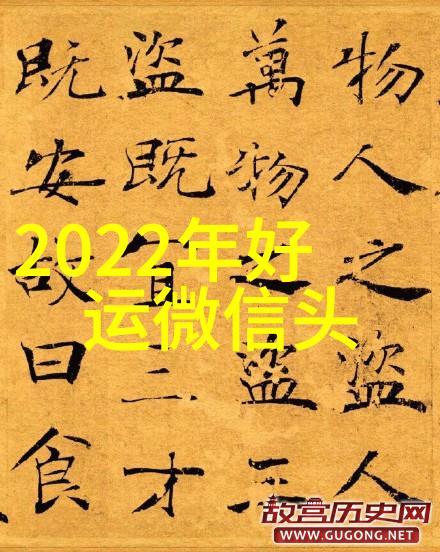 物人之盜人
萬物之盜三
盜既宜三才
既安故曰食
2022年好
运微信头
故宫历史网
WWW.GUGONG.NET